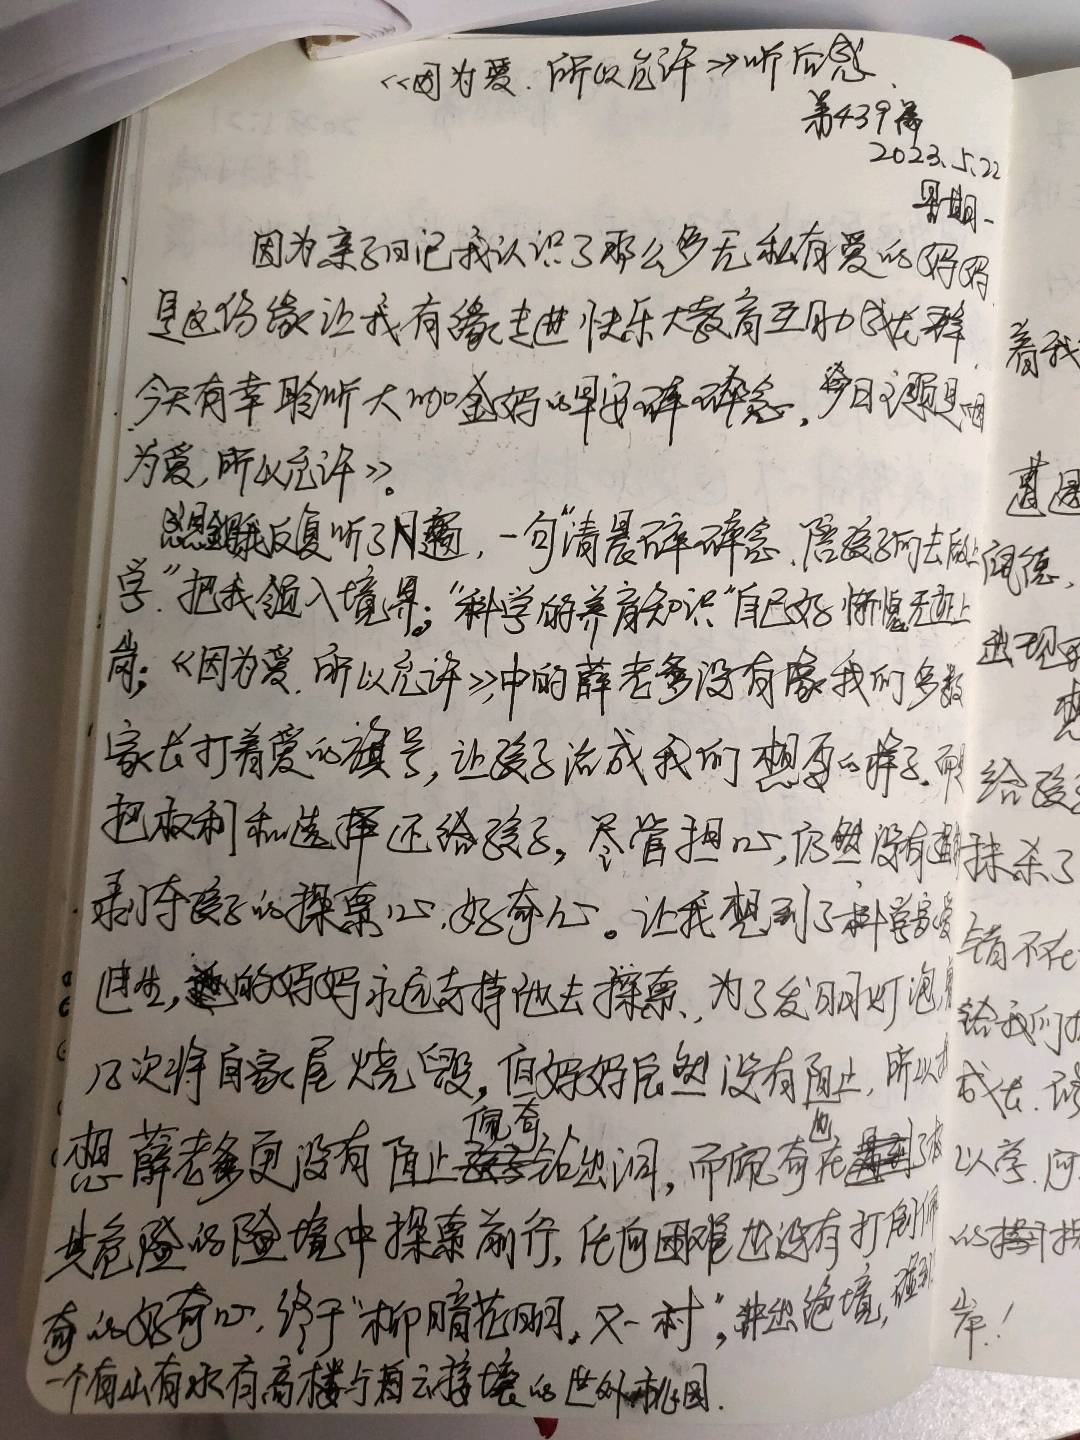 《因为爱.所以允许》听后感.
第439篇
2023.5.22
星期一
因为亲子日记我认识了那么多无私有爱的妈妈
是这份缘让我有缘走进快乐大教育互助成长群.
今天有幸聆听大咖金妈的早安碎碎念,今日主题是《因
为爱,所以允许》。
我反复听了N遍,一句"清晨碎碎念.陪孩子向去向上
学."把我领入境界;"科学的养育知识"自己好惭愧无证上
岗;《因为爱.所以允许》中的薛老爹没有像我们多数
家长打着爱的旗号,让孩子活成我们想要的样子.而是
把权利和选择还给孩子,尽管担心,仍然没有
剥夺孩子的探索心.好奇心。让我想到了科学家爱
迪生,他的妈妈永远支持他去探索.,为了发明灯泡,
几次将自家屋烧毁,但妈妈居然没有阻止.所以我
想薛老爹更没有阻止佩奇钻出洞,而佩奇也在
其危险的险境中探索前行,任何困难也没有打倒佩
奇的好奇心.终于"柳暗花明.又一村",冲出绝境,碰到
一个有山有水有高楼与白云接壤的世外桃园.
着我
给孩子
抹杀了
错不在
给我们
成长.
以学.
的探
岸!